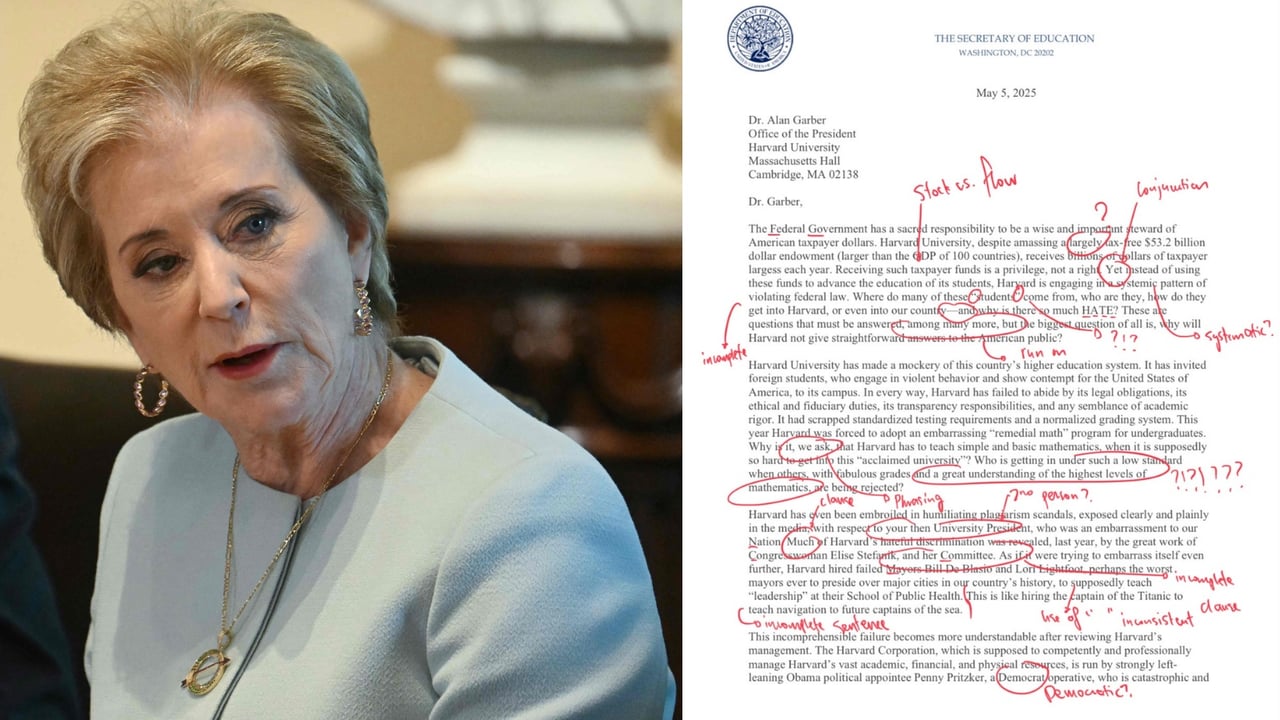 DEPARTMENT OF EDUCATION
UNITED STATES OF AMERICA
THE SECRETARY OF EDUCATION
WASHINGTON, DC 20202
May 5, 2025
Dr. Alan Garber
Office of the President
Harvard University
Massachusetts Hall
Cambridge, MA 02138
Stock vs. flow
Conjunction
Dr. Garber,
?
The Federal Government has a sacred responsibility to be a wise and important steward of
American taxpayer dollars. Harvard University, despite amassing a largely tax-free $53.2 billion
dollar endowment (larger than the GDP of 100 countries), receives billions of dollars of taxpayer
largess each year. Receiving such taxpayer funds is a privilege, not a right. Yet instead of using
these funds to advance the education of its students, Harvard is engaging in a systemic pattern of
violating federal law. Where do many of these “students” come from, who are they, how do they
get into Harvard, or even into our country—and why is there so much HATE? These are
questions that must be answered, among many more, but the biggest question of all is, why will
Harvard not give straightforward answers to the American public?
incomplete
run on
?!?
systematic?
Harvard University has made a mockery of this country’s higher education system. It has invited
foreign students, who engage in violent behavior and show contempt for the United States of
America, to its campus. In every way, Harvard has failed to abide by its legal obligations, its
ethical and fiduciary duties, its transparency responsibilities, and any semblance of academic
rigor. It had scrapped standardized testing requirements and a normalized grading system. This
year Harvard was forced to adopt an embarrassing “remedial math” program for undergraduates.
Why is it, we ask, that Harvard has to teach simple and basic mathematics, when it is supposedly
so hard to get into this “acclaimed university”? Who is getting in under such a low standard
when others, with fabulous grades and a great understanding of the highest levels of
mathematics, are being rejected?
?!?!???
clause
Phrasing
?no person?
Harvard has even been embroiled in humiliating plagiarism scandals, exposed clearly and plainly
in the media, with respect to your then University President, who was an embarrassment to our
Nation. Much of Harvard’s hateful discrimination was revealed, last year, by the great work of
Congresswoman Elise Stefanik, and her Committee. As if it were trying to embarrass itself even
further, Harvard hired failed Mayors Bill De Blasio and Lori Lightfoot, perhaps the worst
mayors ever to preside over major cities in our country’s history, to supposedly teach
“leadership” at their School of Public Health. This is like hiring the captain of the Titanic to
teach navigation to future captains of the sea.
incomplete
clause
use of “ ” inconsistent
incomplete sentence
This incomprehensible failure becomes more understandable after reviewing Harvard’s
management. The Harvard Corporation, which is supposed to competently and professionally
manage Harvard’s vast academic, financial, and physical resources, is run by strongly left-
leaning Obama political appointee Penny Pritzker, a Democrat operative, who is catastrophic and
Democratic?